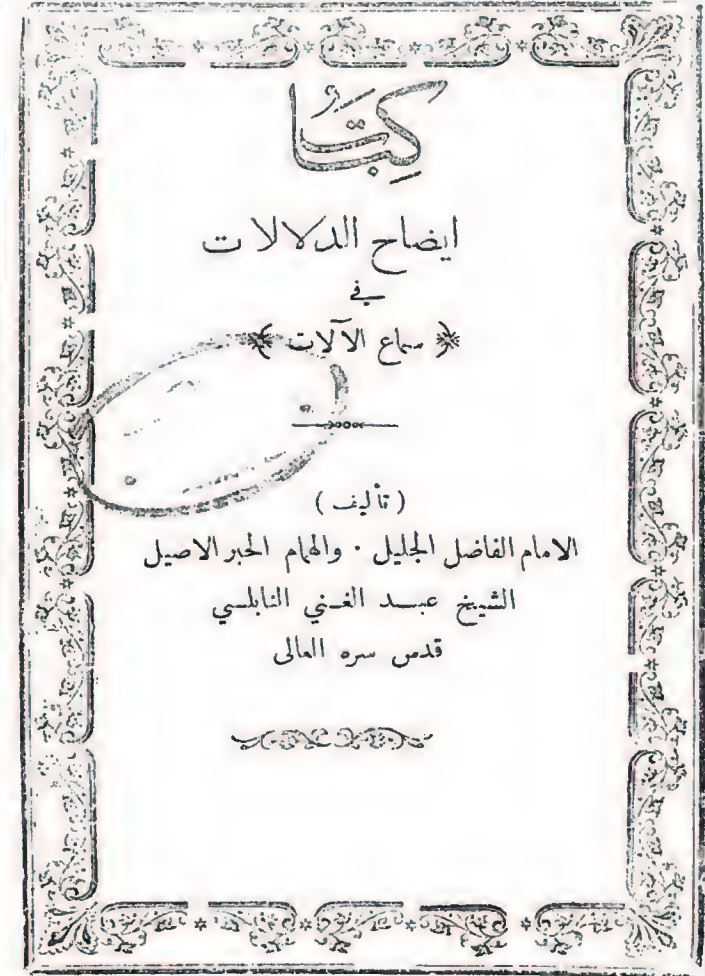 كِتَابُ
ايضاح الدلالات
في
سماع الآلات
( تأليف )
الامام الفاضل الجليل · والهمام الحبر الاصيل
الشيخ عبد الغني النابلسي
قدس سره العالى